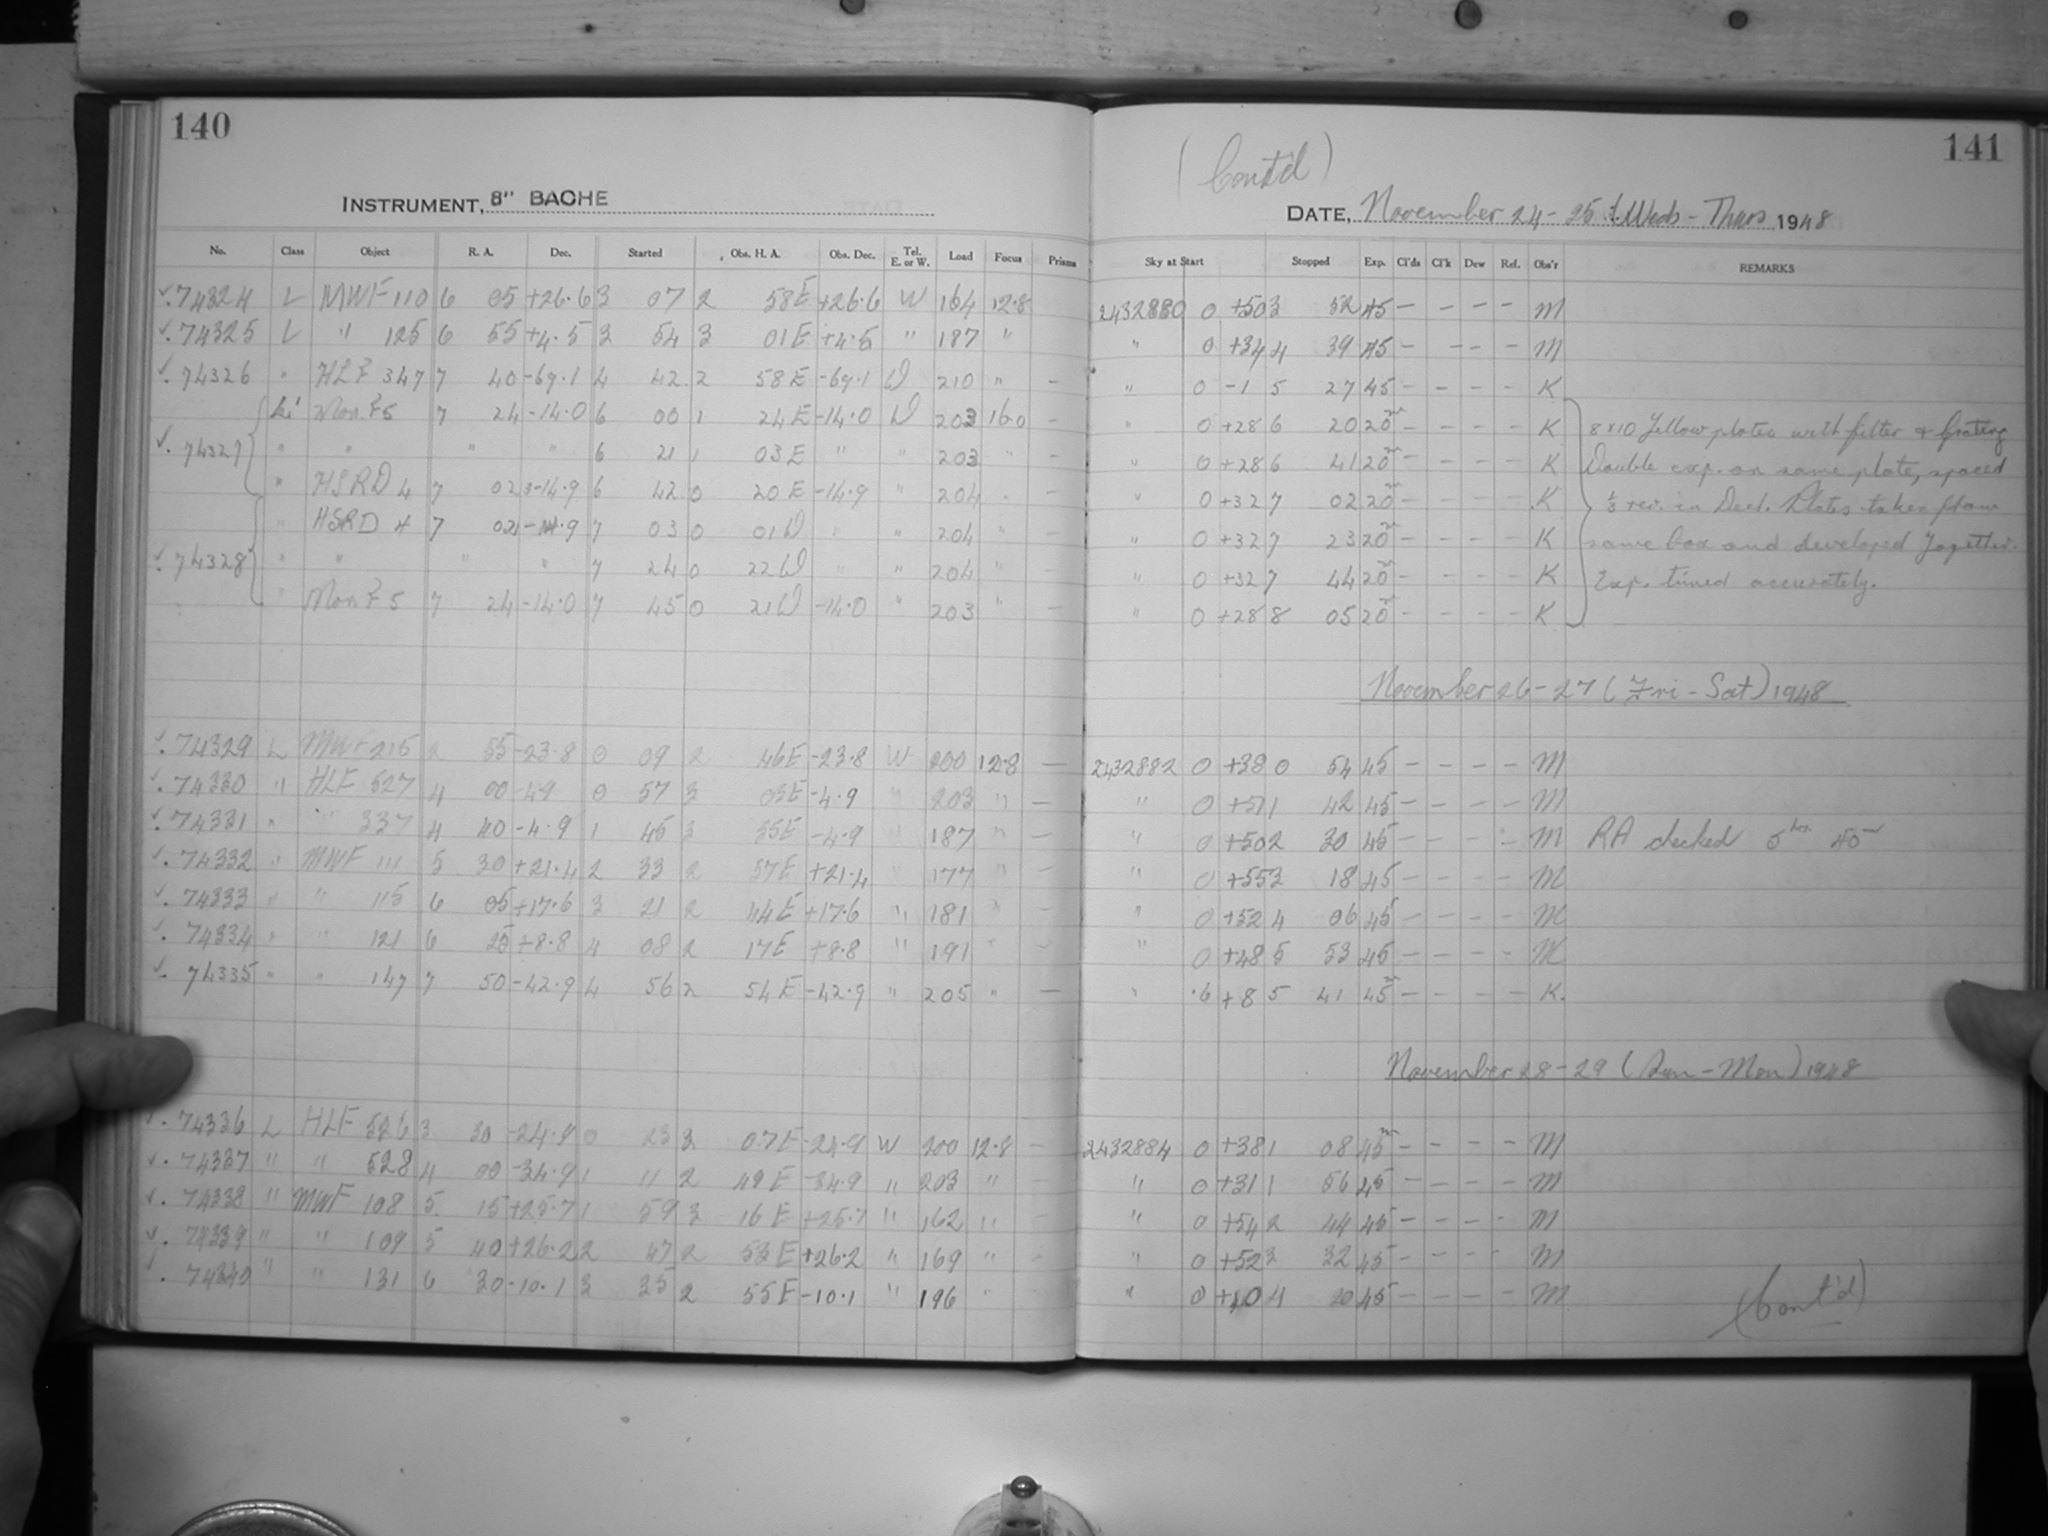 140
INSTRUMENT, 8" BACHE
No. Class Object R. A. Dec. Started Obs. H. A. Obs. Dec. Tel. E. or W. Load Focus Prisms
74324 L MWF 110 6 05 +26.6 3 07 2 58E +26.6 W 164 12.8
74325 L " 125 6 55 +4.5 3 54 3 01E +4.5 " 187 "
74326 " HLF 347 7 40 -69.1 4 42 2 58E -69.1 W 210 " -
Li Mon. F5 7 24 -14.0 6 00 1 24E -14.0 W 203 16.0 -
74327 " " " " 6 21 1 03E " " 203 " -
" HSRD 4 7 02 -14.9 6 42 0 20E -14.9 " 204 " -
" HSRD 4 7 02 -14.9 7 03 0 01W " " 204 " -
74328 " " " " 7 24 0 22W " " 204 " -
" Mon. F5 7 24 -14.0 7 45 0 21W -14.0 " 203 " -
74329 L MWF 215 2 55 -23.8 0 09 2 46E -23.8 W 200 12.8 -
74330 " HLF 527 4 00 -4.9 0 57 3 03E -4.9 " 203 " -
74331 " " 337 4 40 -4.9 1 45 3 35E -4.9 " 187 " -
74332 " MWF 111 5 30 +21.4 2 33 2 57E +21.4 " 177 " -
74333 " " 115 6 05 +17.6 3 21 2 44E +17.6 " 181 " -
74334 " " 121 6 25 +8.8 4 08 2 17E +8.8 " 191 " -
74335 " " 147 7 50 -42.9 4 56 2 54E -42.9 " 205 " -
74336 L HLF 526 3 30 -24.9 0 23 3 07E -24.9 W 200 12.8 -
74337 " " 528 4 00 -34.9 1 11 2 49E -34.9 " 203 " -
74338 " MWF 108 5 15 +25.7 1 59 3 16E +25.7 " 162 " -
74339 " " 109 5 40 +26.2 2 47 2 53E +26.2 " 169 " -
74340 " " 131 6 30 -10.1 3 35 2 55E -10.1 " 196 "
141
(Cont'd)
DATE, November 24-25 (Weds-Thurs 1948
Sky at Start Stopped Exp. Cl'ds Cl'k Dew Ref. Obs'r REMARKS
2432880 0 +50 3 52 45 - - - - M
" 0 +34 4 39 45 - - - - M
" 0 -1 5 27 45 - - - - K
" 0 +28 6 20 20m - - - - K 8x10 Yellow plates with filter & Grating
" 0 +28 6 41 20m - - - - K Double exp. on same plate, spaced
" 0 +32 7 02 20m - - - - K 1/3 rev. in Decl. Plates taken from
" 0 +32 7 23 20m - - - - K same box and developed together.
" 0 +32 7 44 20m - - - - K Exp. timed accurately.
" 0 +28 8 05 20m - - - - K
November 26-27 (Fri-Sat) 1948
2432882 0 +38 0 54 45 - - - - M
" 0 +51 1 42 45 - - - - M
" 0 +50 2 30 45 - - - - M RA checked 5hrs 40m
" 0 +55 3 18 45 - - - - M
" 0 +52 4 06 45 - - - - M
" 0 +48 5 53 45 - - - - M
" .6 +8 5 41 45m - - - - K.
November 28-29 (Sun-Mon) 1948
2432884 0 +38 1 08 45m - - - - M
" 0 +31 1 56 45 - - - - M
" 0 +54 2 44 45 - - - - M
" 0 +52 3 32 45 - - - - M
" 0 +10 4 20 45 - - - - M
(Cont'd)